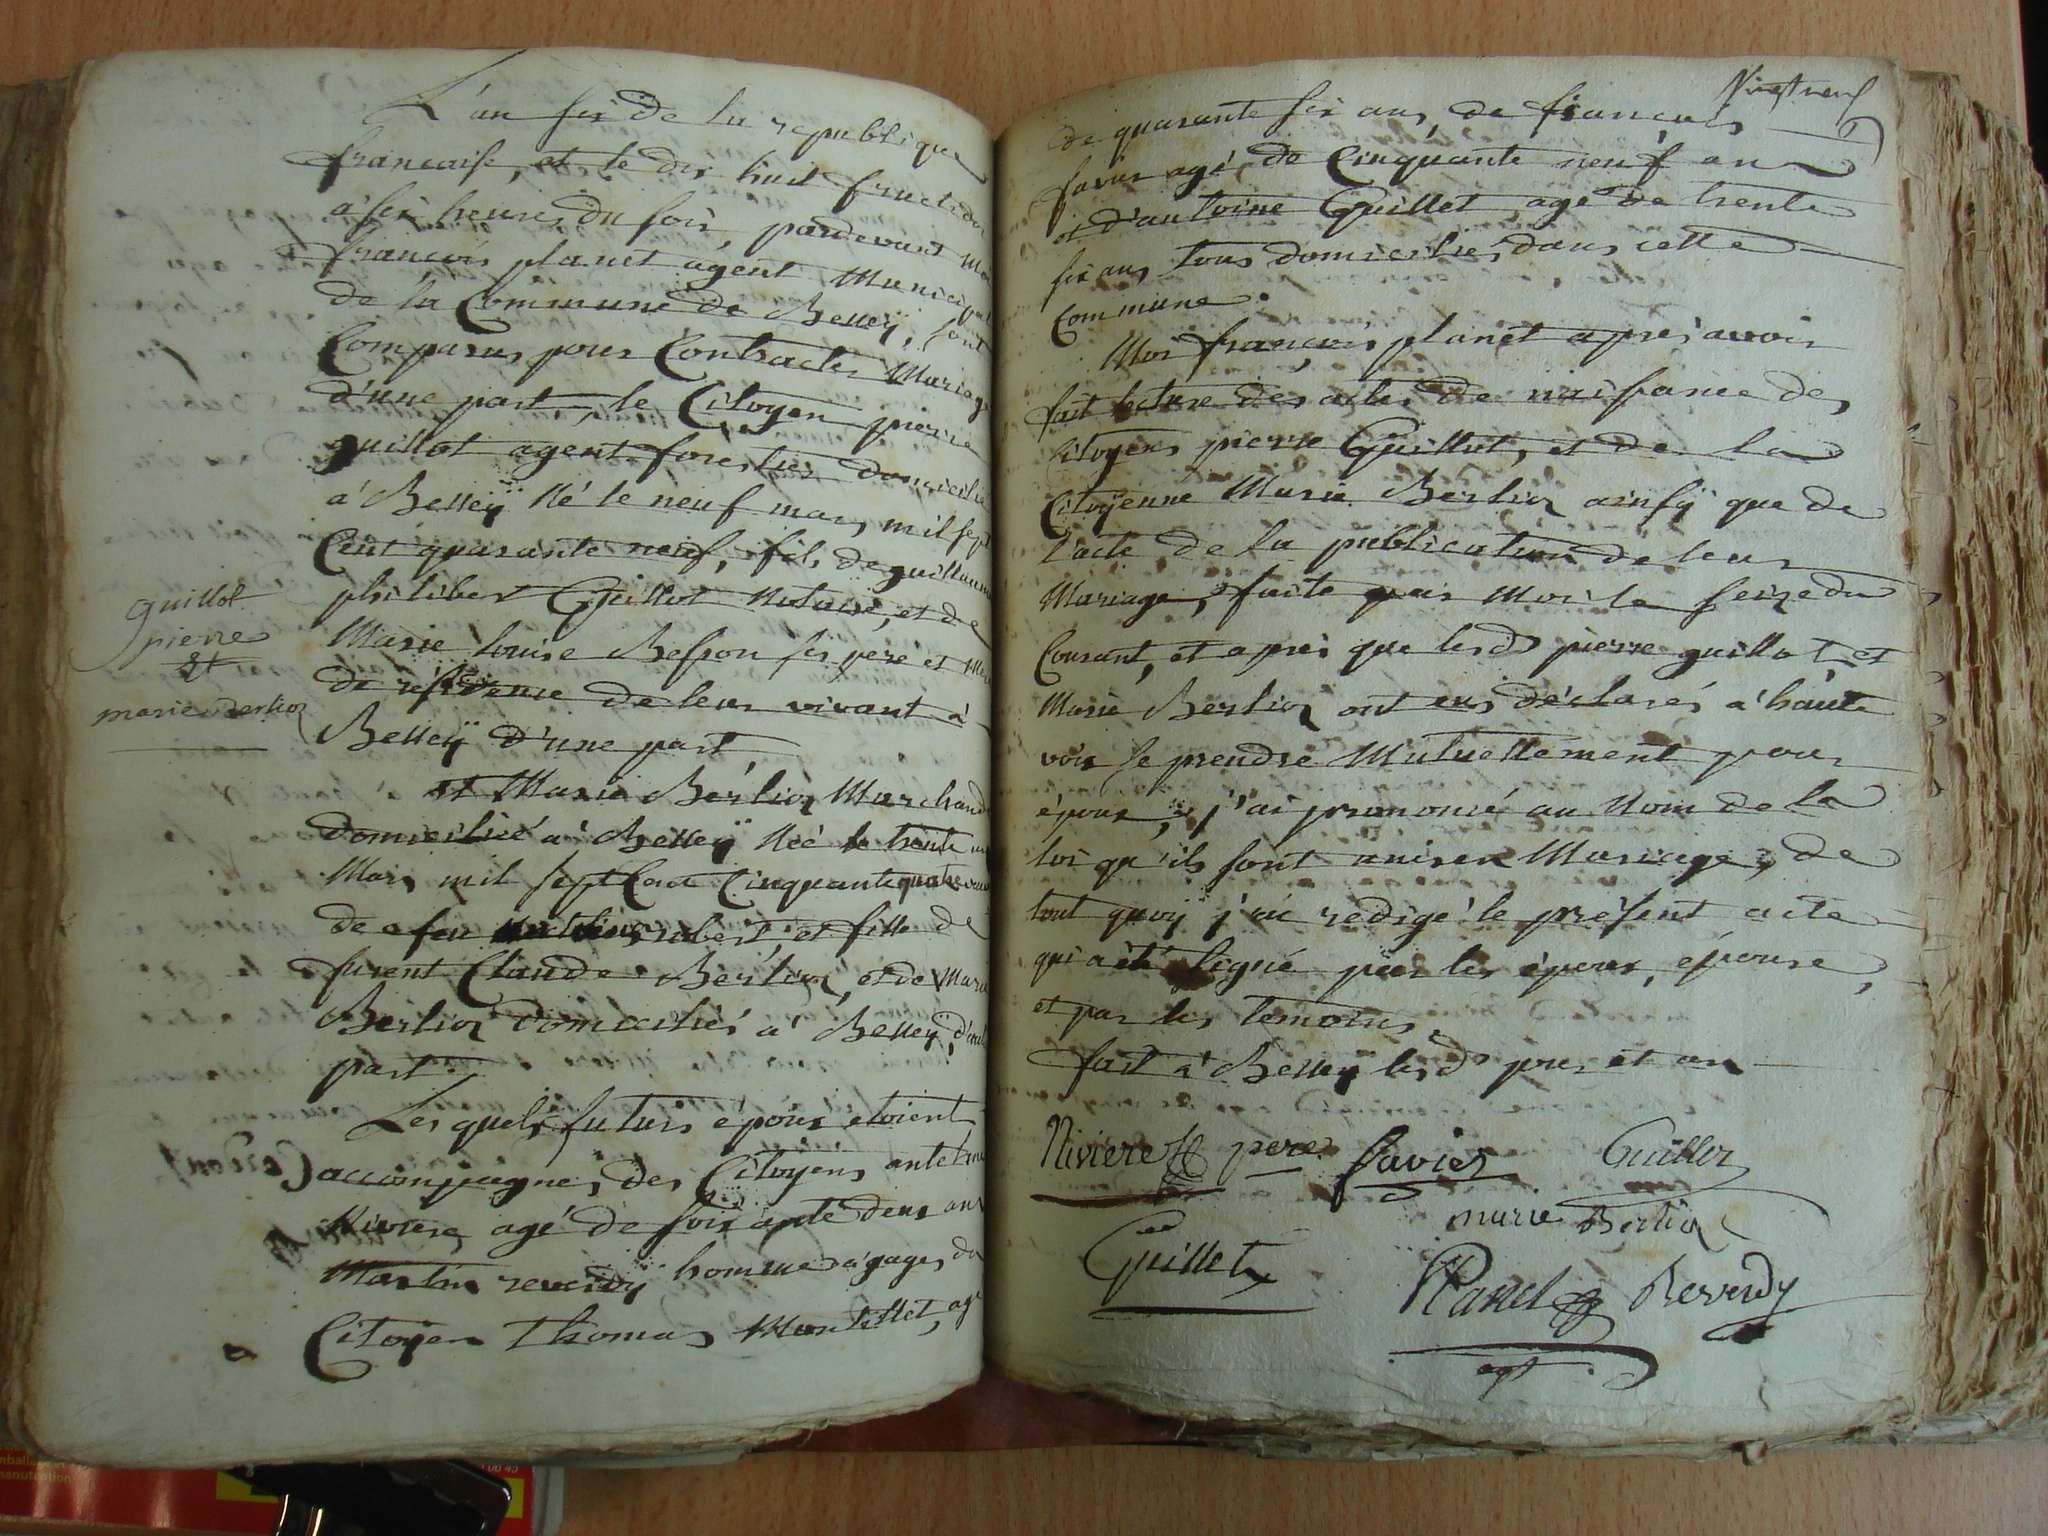 L'an six de la republique
francaise, et le dix huit fructidor
à six heures du soir, pardevant Moi
françois planet agent Municipal
de la Commune de Belleÿ, sont
Comparus pour Contracter Mariage
d'une part, le Citoyen pierre
guillot agent forestier domicilié
à Belleÿ Né le neuf mars mil sept
Cent quarante neuf, fils de guillaume
philibert Guillot Notaire, et de
Marie louise Besson ses pere et Mere
de residence de leur vivant à
Belleÿ d'une part
guillot
pierre
et
marie berlioz
et Marie Berlioz Marchande
domiciliée à Belleÿ Née le trente
Mars mil sept Cent Cinquante quatre veuve
de feu robert, et fille de
furent Claude Berlioz, et de Marie
Berlioz domiciliés à Belleÿ, d'autre
part.
Les quels futurs époux etoient
accompagnés des Citoyens antelme
Riviere agé de soixante deux ans
Martin reverdÿ homme à gages du
Citoyen Thomas Montillet, agé
Vingt neuf
de quarante six ans, de françois
favier agé de Cinquante neuf ans
et d'antoine Guillet agé de trente
six ans tous domiciliés dans cette
Commune.
Moi françois planet apres avoir
fait lecture des actes de naissance des
Citoyens pierre Guillot, et de la
Citoÿenne Marie Berlioz ainsÿ que de
l'acte de la publication de leur
Mariage, faite par Moi le seize du
Courant, et apres que lesd pierre guillot et
Marie Berlioz ont eus déclarés à haute
voix se prendre Mutuellement pour
époux, j'ai prononcé au Nom de la
loi qu'ils sont unis en Mariage, de
tout quoÿ j'ai redigé le présent acte
qui a été signé par les époux, épouse,
et par les temoins.
fait à Belleÿ lesd jour et an
Riviere pere favier Guillot
marie Berlioz
Guillet
Planet Reverdy
agt